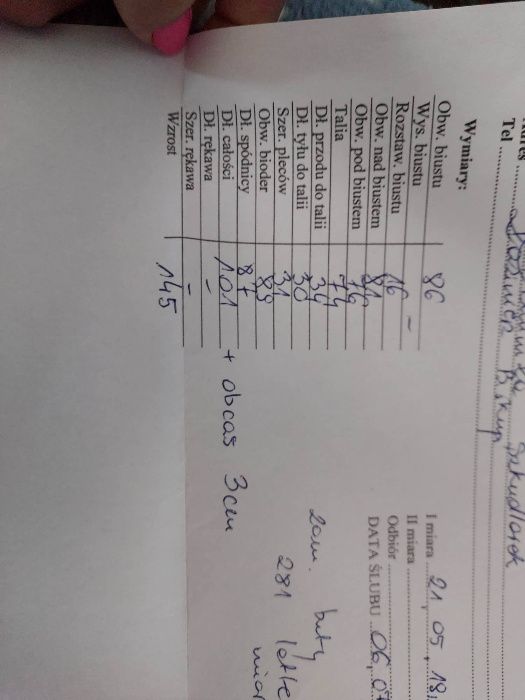 Tel
Wymiary:
Obw. biustu 86
Wys. biustu -
Rozstaw. biustu 16
Obw. nad biustem 81
Obw. pod biustem 76
Talia 74
Dł. przodu do talii 34
Dł. tyłu do talii 30
Szer. pleców 31
Obw. bioder 89
Dł. spódnicy 87
Dł. całości 101 + obcas 3cm
Dł. rękawa -
Szer. rękawa -
Wzrost 145
I miara 21 05 18
II miara
Odbiór
DATA ŚLUBU 06.07
zam. buty
281